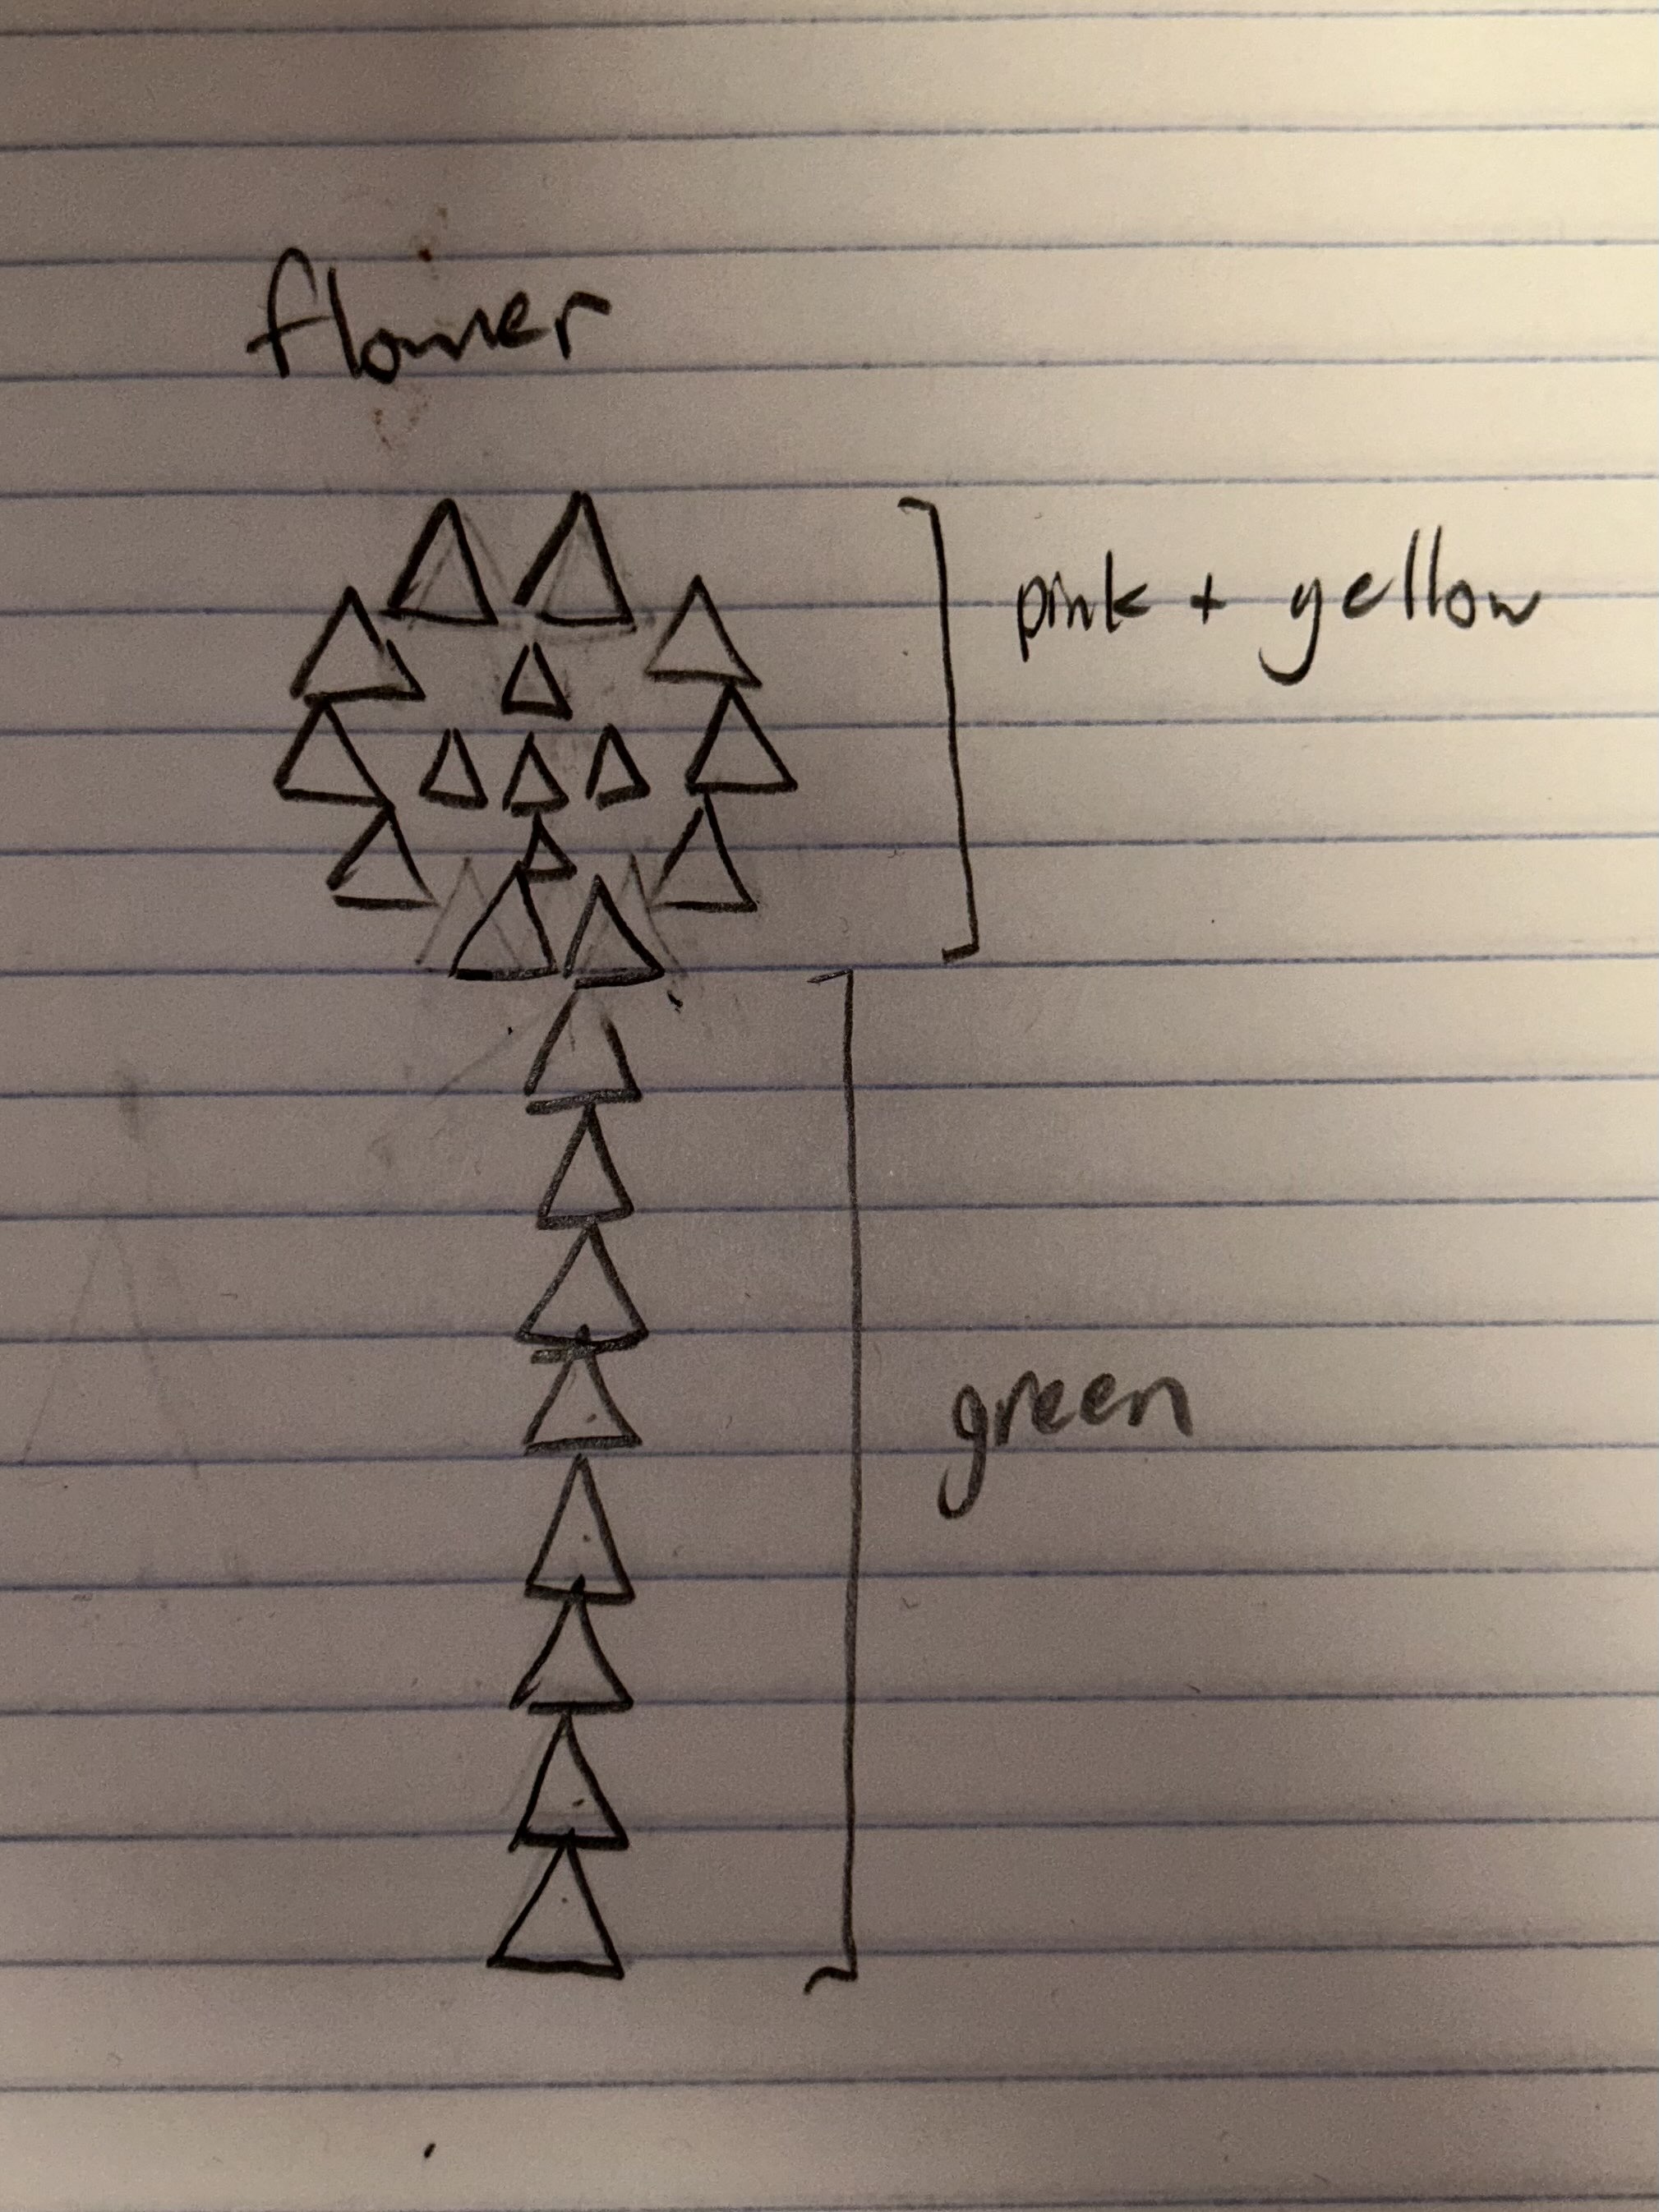 flower
pink + yellow
green